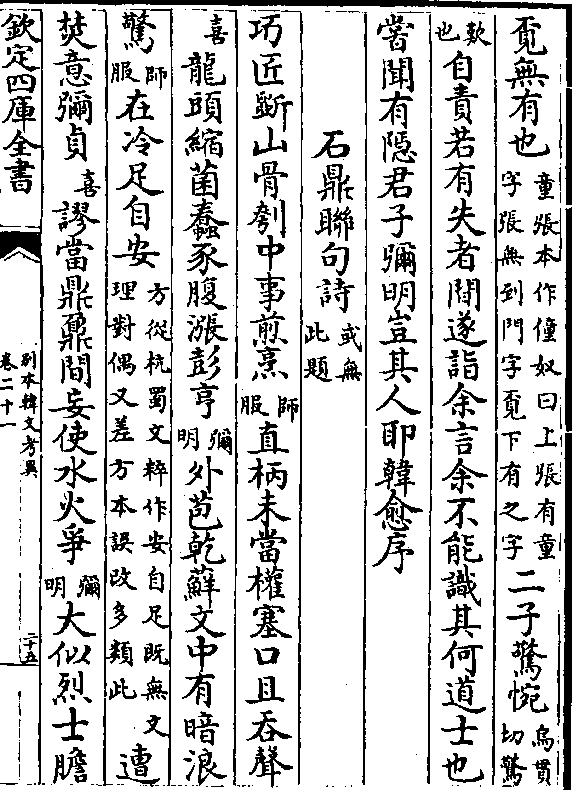 覔無有也童張本作僮奴曰上張有童字張無到門字覔下有之字二子驚惋烏貫切驚
歎也自責若有失者閒遂詣余言余不能識其何道士也
嘗聞有隱君子彌明豈其人耶韓愈序
石鼎聯句詩或無此題
巧匠斲山骨刳中事煎烹師服直柄未當權塞口且吞聲
喜龍頭縮菌蠢豕腹漲彭亨彌明外苞乾蘚文中有暗浪
驚師服在冷足自安方從杭蜀文粹作安自足既無文理對偶又差方本誤改多類此遭
焚意彌貞喜謬當鼎鼐間妄使水火爭彌明大似烈士膽
欽定四庫全書
別本韓文考異
卷二十一
二十五